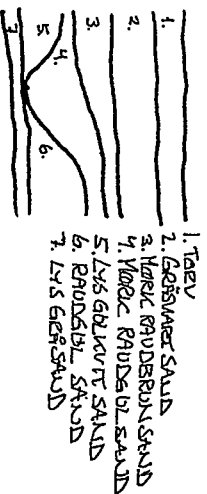 1.
2.
3.
4.
5.
6.
7.
1. TORV
2. GRÅSVART SAND
3. MØRK RAUDBRUN SAND
4. MØRK RAUDGUL SAND
5. LYS GULKVIT SAND
6. RAUDGUL SAND
7. LYS GRÅ SAND